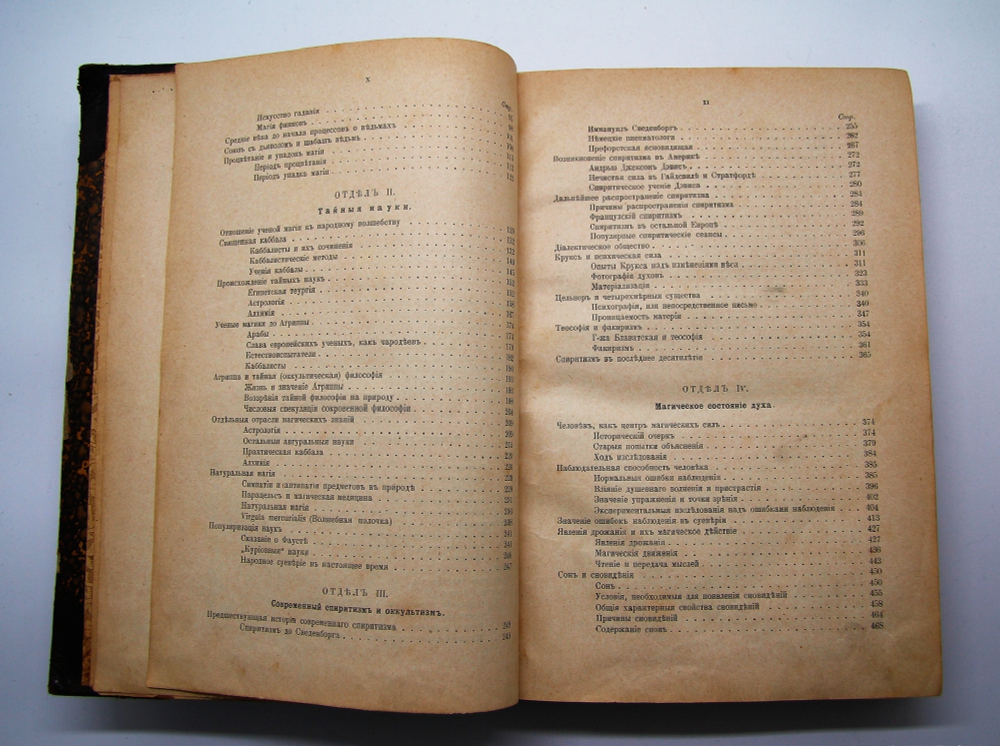 X
Стр.
Искусство гаданія
Магія финновъ
Средніе вѣка до начала процессовъ о вѣдьмахъ
Союзъ съ дьяволомъ и шабашъ вѣдьмъ
Процвѣтаніе и упадокъ магіи
Періодъ процвѣтанія
Періодъ упадка магіи
ОТДѢЛЪ II.
Тайныя науки.
Отношеніе ученой магіи къ народному волшебству
Священная каббала 132
Каббалисты и ихъ сочиненія
Каббалистическіе методы
Ученія каббалы
Происхожденіе тайныхъ наукъ
Египетская теургія
Астрологія
Алхимія
Ученые магики до Агриппы
Арабы
Слава европейскихъ ученыхъ, какъ чародѣевъ
Естествоиспытатели
Каббалисты
Агриппа и тайная (оккультическая) философія
Жизнь и значеніе Агриппы
Воззрѣнія тайной философіи на природу
Числовыя спекуляціи сокровенной философіи
Отдѣльныя отрасли магическихъ знаній
Астрологія
Остальныя авгуральныя науки
Практическая каббала
Алхимія
Натуральная магія
Симпатіи и антипатіи предметовъ въ природѣ
Парацельсъ и магическая медицина
Натуральная магія
Virgula mercurialis (Волшебная палочка)
Популяризація наукъ 241
Сказаніе о Фаустѣ 241
„Куріозныя“ науки
Народное суевѣріе въ настоящее время 247
ОТДѢЛЪ III.
Современный спиритизмъ и оккультизмъ.
Предшествующая исторія современнаго спиритизма 249
Спиритизмъ до Сведенборга 249
XI
Стр.
Иммануилъ Сведенборгъ 255
Нѣмецкіе пневматологи 262
Префорстская ясновидящая 267
Возникновеніе спиритизма въ Америкѣ 272
Андрью Джексонъ Дэвисъ 272
Нечистая сила въ Гайдсвилѣ и Стратфордѣ 277
Спиритическое ученіе Дэвиса 280
Дальнѣйшее распространеніе спиритизма 284
Причины распространенія спиритизма 284
Французскій спиритизмъ 289
Спиритизмъ въ остальной Европѣ 292
Популярные спиритическіе сеансы 296
Діалектическое общество 306
Круксъ и психическая сила 311
Опыты Крукса надъ измѣненіями вѣса 311
Фотографіи духовъ 323
Матеріализація 333
Цельнеръ и четырехмѣрныя существа 340
Психографія, или непосредственное письмо 340
Проницаемость матеріи 347
Теософія и факиризмъ 354
Г-жа Блаватская и теософія 354
Факиризмъ 361
Спиритизмъ въ послѣднее десятилѣтіе 365
ОТДѢЛЪ IV.
Магическое состояніе духа.
Человѣкъ, какъ центръ магическихъ силъ 374
Историческій очеркъ 374
Старыя попытки объясненія 379
Ходъ изслѣдованія 384
Наблюдательная способность человѣка 385
Нормальныя ошибки наблюденія 385
Вліяніе душевнаго волненія и пристрастія 396
Значеніе упражненія и точки зрѣнія 402
Экспериментальныя изслѣдованія надъ ошибками наблюденія 404
Значеніе ошибокъ наблюденія въ суевѣріи 413
Явленія дрожанія и ихъ магическое дѣйствіе 427
Явленія дрожанія 427
Магическія движенія 436
Чтеніе и передача мыслей 443
Сонъ и сновидѣнія 450
Сонъ 450
Условія, необходимыя для появленія сновидѣній 455
Общія характерныя свойства сновидѣній 458
Причины сновидѣній 464
Содержаніе сновъ 468